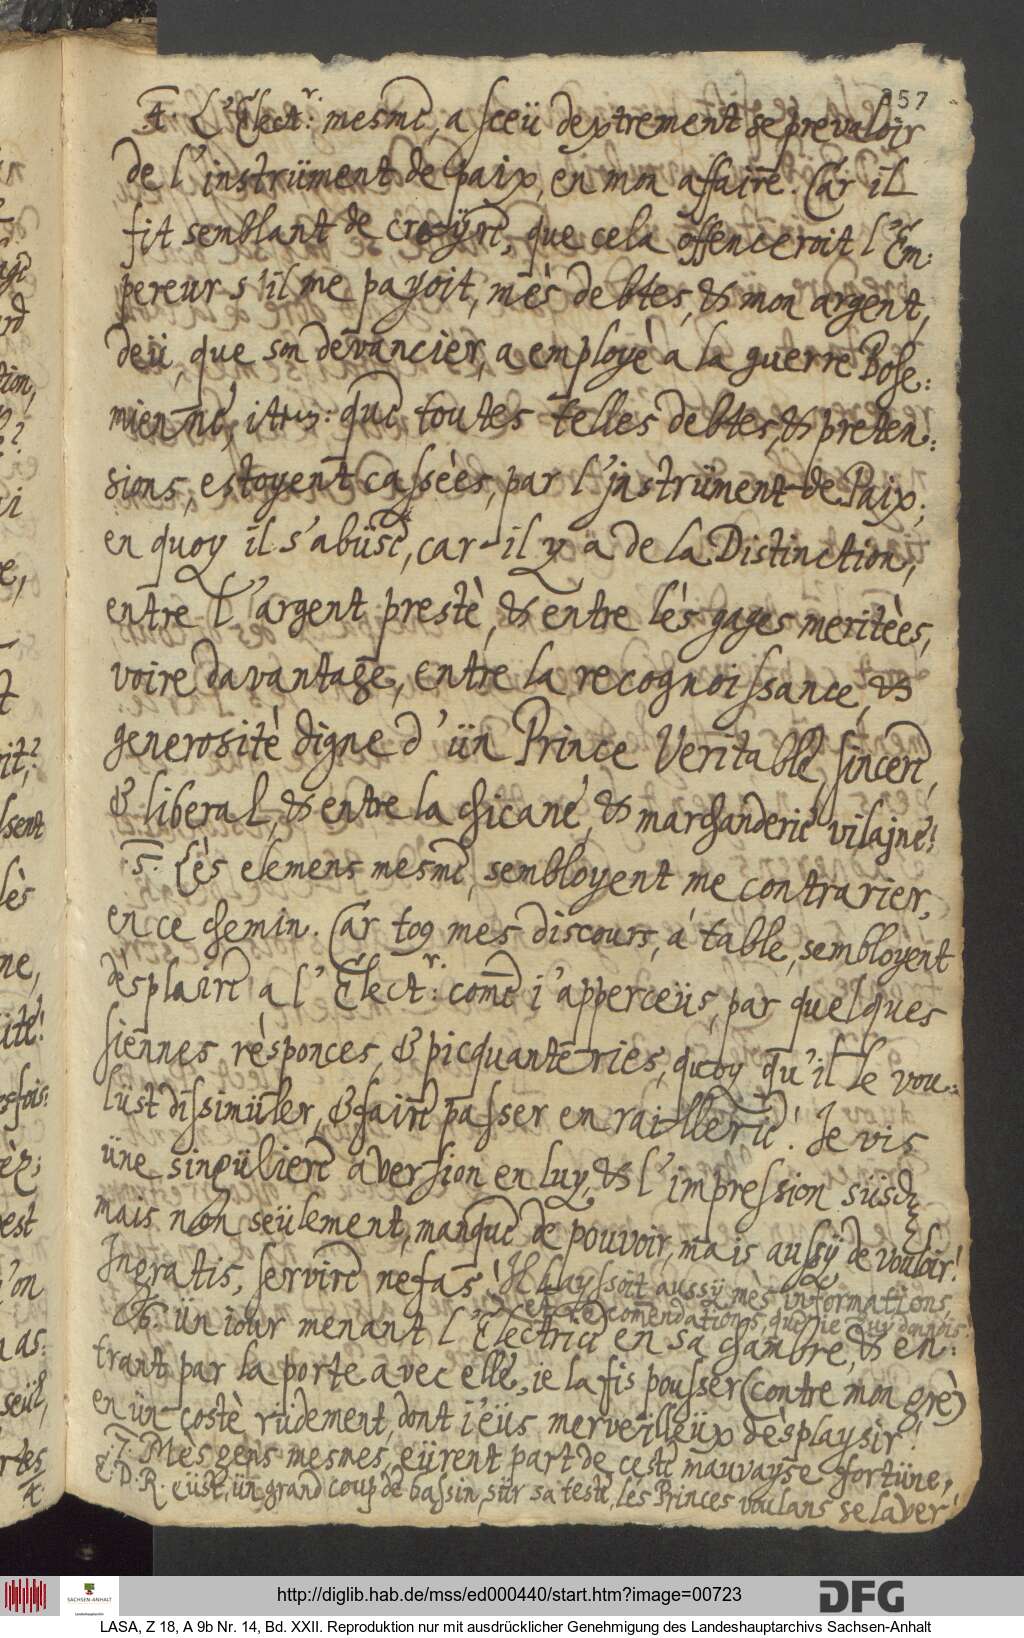 357
4. L'Elect.r: mesme, a sceü dextrement se prevaloir
de l'instrüment de paix, en mon affaire. Car il
fit semblant de croÿre, que cela offenceroit l'Em:
pereur s'il me payoit, mès debtes, & mon argent,
deü, que son devancier, a employè a la guerre Bohe:
mienne, item: que toutes telles debtes, & preten:
sions, estoyent cassèes, par l'jnstrüment de Paix;
en quoy il s'abüse, car il y a de la Distinction,
entre l'argent prestè, & entre lès gages meritèes,
voire davantage, entre la recognoissance, &
generositè digne d'ün Prince Veritable, sincere,
& liberal, & entre la chicane, & marchanderie vilajne!
5. Lès elemens mesme, sembloyent me contrarier,
en ce chemin. Car to9 mes discours, a table, sembloyent
dèsplaire a l'Elect.r: come i'apperceüs, par quelques
siennes rèsponces, & picquanteries, quoy qu'il le vou:
lüst dissimüler, & faire passer en raillerie! Je vis
üne singüliere aversion en luy, & l'impression süsd{ite}
mais non seülement, manque de pouvoir, mais aussÿ de vouloir!
Jngratis, servire nefas! Il hayssoit aussÿ mès informations,
et recomendations, que ie luy donnois.
6. Ün iour menant l'Electrice en sa chambre, & en:
trant par la porte avec elle, ie la fis pousser (contre mon grè)
en ün costè, rüdement, dont i'eüs merveilleüx dèsplaysir!
7. Mès gens mesmes, eürent part de ceste mauvayse fortüne,
E. D. R. eüst, ün grand coup de bassin, sür sa teste, lès Princes voulans se laver!
http://diglib.hab.de/mss/ed000440/start.htm?image=00723
DFG
SACHSEN-ANHALT
LASA, Z 18, A 9b Nr. 14, Bd. XXII. Reproduktion nur mit ausdrücklicher Genehmigung des Landeshauptarchivs Sachsen-Anhalt